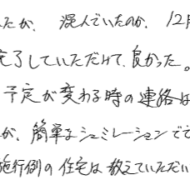 たか、混んでいたのか、12月
完了していただけて、良かった。
予定が変わる時の連絡は
が、簡単なシュミレーションでで
施行例の住宅は教えていただい